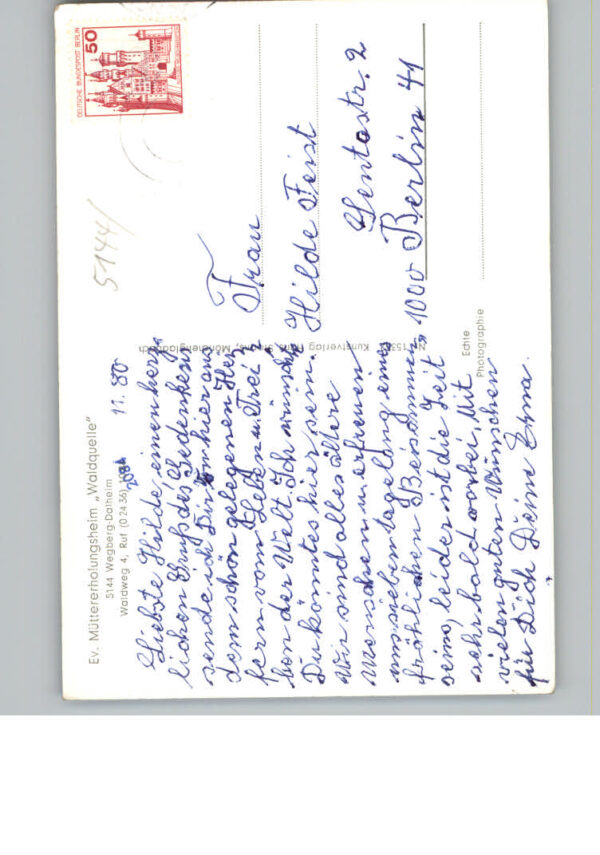 Ev. Müttererholungsheim „Waldquelle"
5144 Wegberg-Dalheim
Waldweg 4, Ruf (0 24 36)
2081
11. 80
Liebste Hilde, einen herz-
lichen Gruß des Gedenkens
sende ich Dir von hier aus
dem schön gelegenen Heim
fern vom Leben u. Trei-
ben der Welt. Ich wünschte
Du könntest hier sein.
Wir sind alles ältere
Menschen u. erfreuen
uns sieben tagelang eines
fröhlichen Beisammen-
seins, leider ist die Zeit
sehr bald vorbei, Mit
vielen guten Wünschen
für Dich Deine Erna.
Kunstverlag Hans Mönchengladbach
Echte
Photographie
DEUTSCHE BUNDESPOST BERLIN
50
5144/
Frau
Hilde Feist
Sentastr. 2
1000 Berlin 41